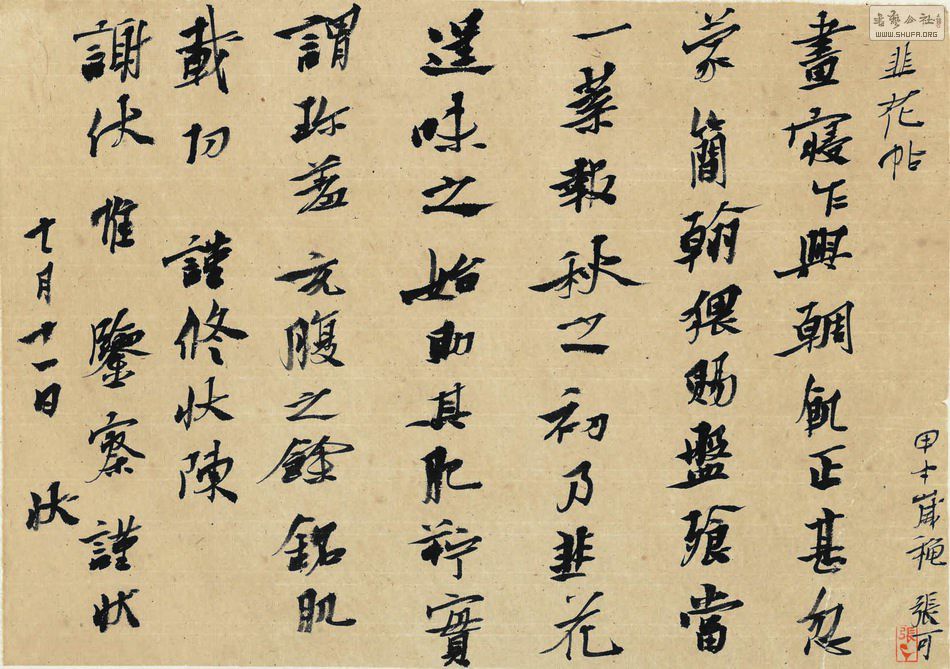 書藝公社
WWW.SHUFA.ORG
韭花帖
甲午歲穐 張可
晝寢乍興輖飢正甚忽
蒙簡翰猥賜盤飱當
一葉報秋之初乃韭花
逞味之始助其肥羜實
謂珍羞充腹之餘銘肌
載切 謹修狀陳
謝伏惟鑒察謹狀
七月十一日 狀